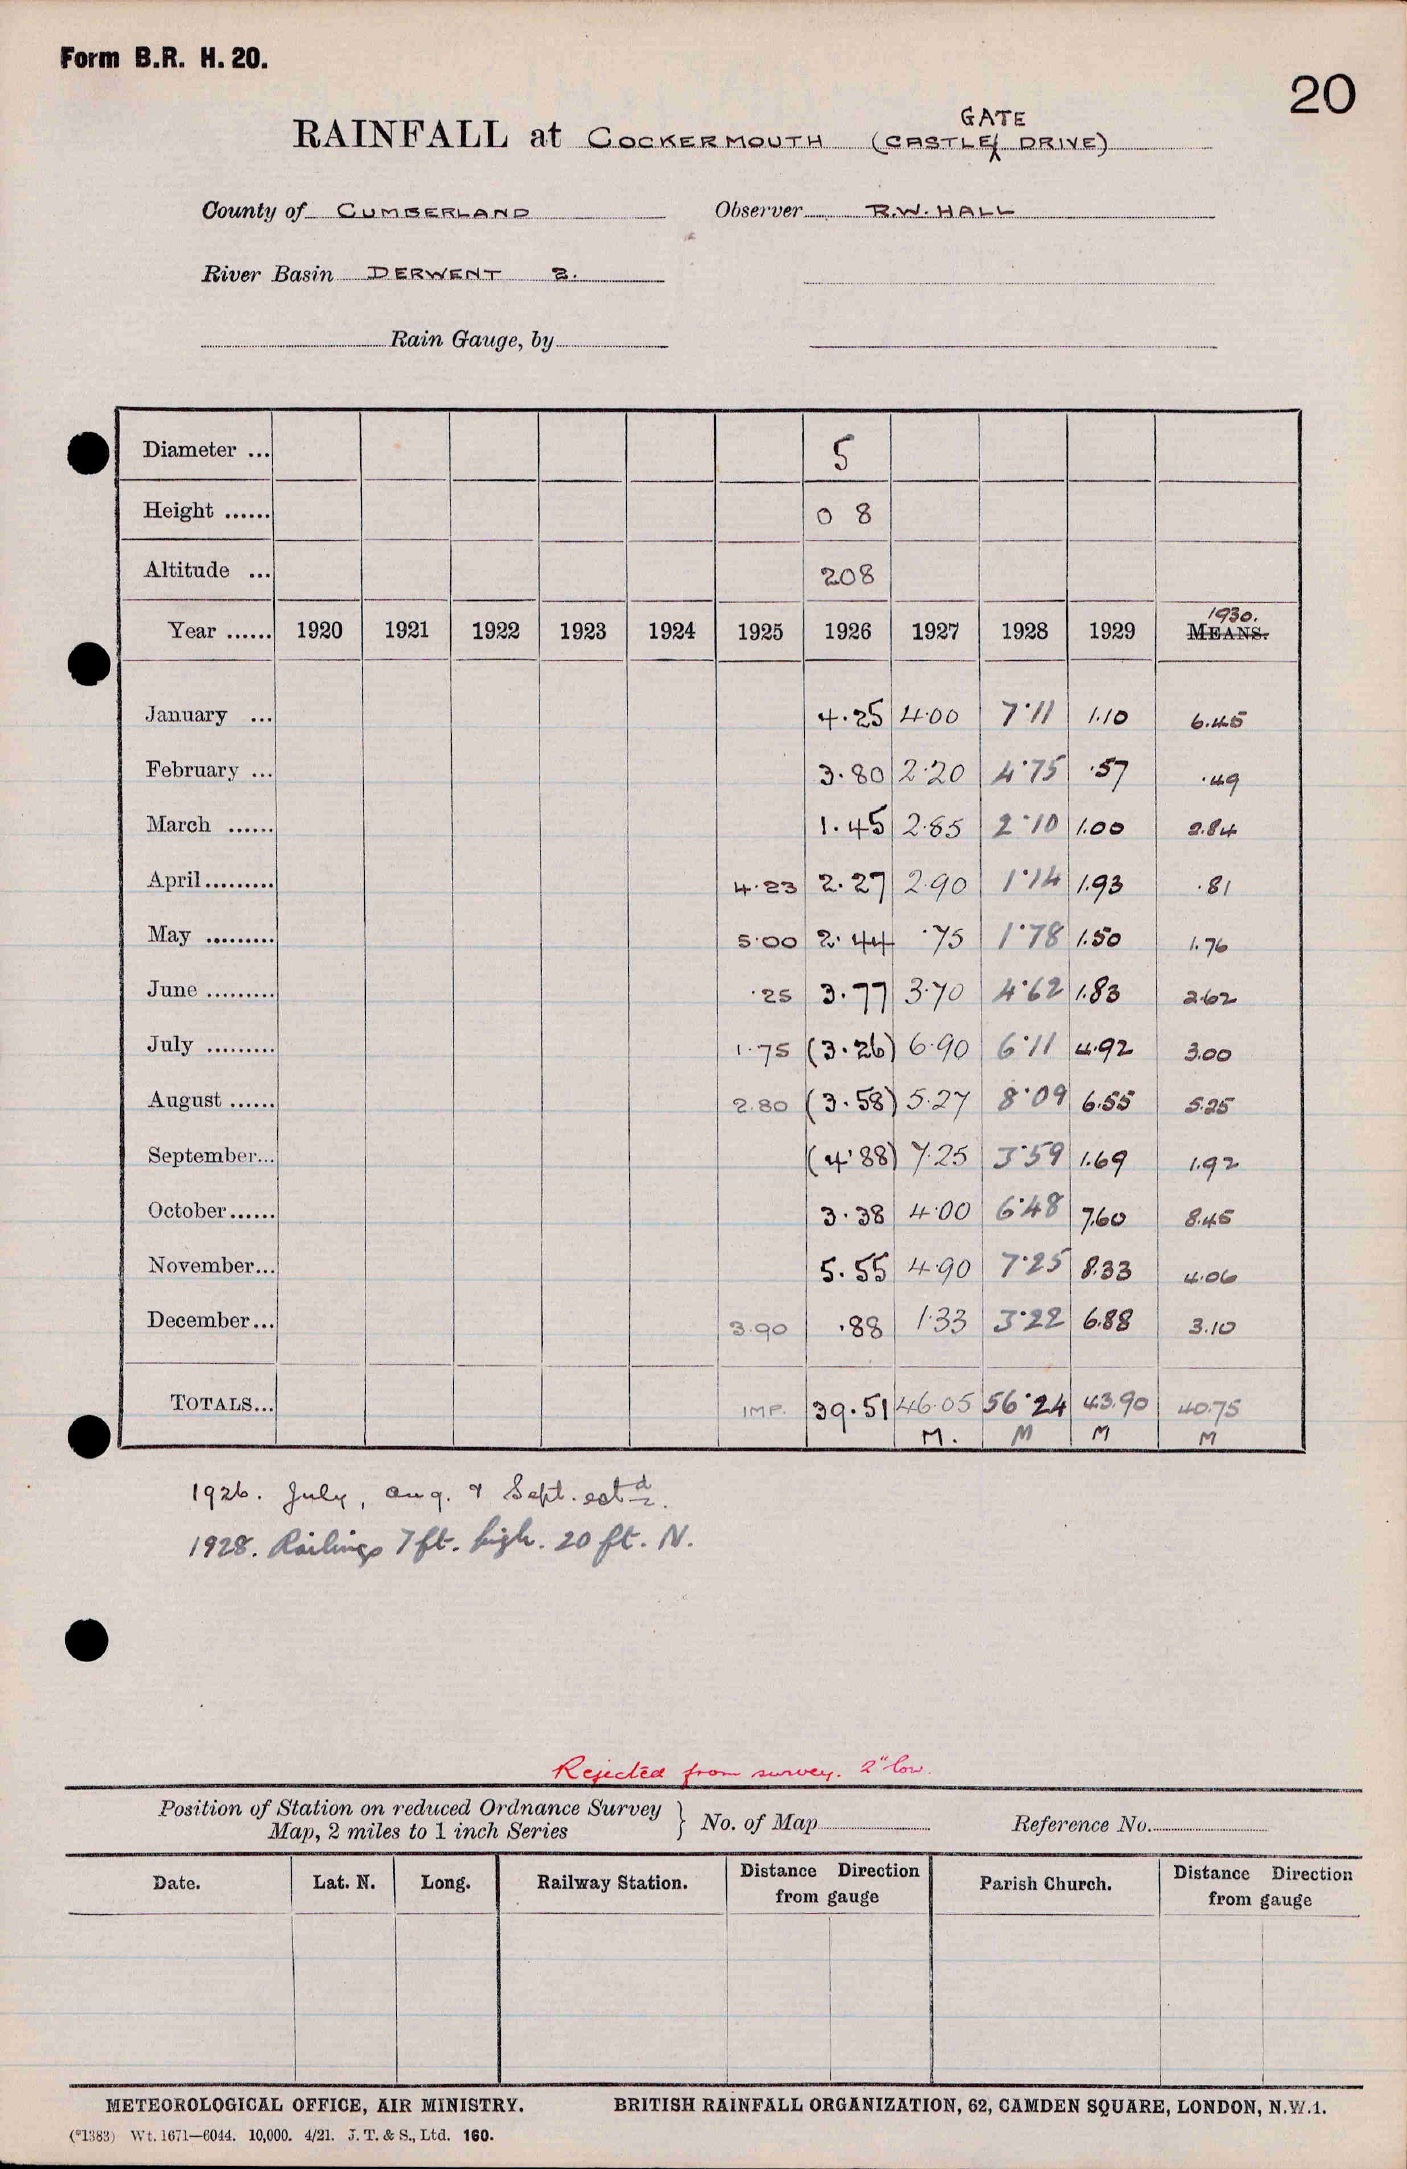 Form B.R. H. 20.
20
GATE
RAINFALL at COCKERMOUTH (CASTLE DRIVE)
County of CUMBERLAND Observer R.W. HALL
River Basin DERWENT 2.
Rain Gauge, by
Diameter ... 5
Height ...... 0 8
Altitude ... 208
1930.
Year ...... 1920 1921 1922 1923 1924 1925 1926 1927 1928 1929 MEANS.
January ... 4.25 4.00 7.11 1.10 6.45
February ... 3.80 2.20 4.75 .57 .49
March ...... 1.45 2.85 2.10 1.00 2.84
April......... 4.23 2.27 2.90 1.14 1.93 .81
May ......... 5.00 2.44 .75 1.78 1.50 1.76
June ......... .25 3.77 3.70 4.62 1.83 2.62
July ......... 1.75 (3.26) 6.90 6.11 4.92 3.00
August ...... 2.80 (3.58) 5.27 8.09 6.55 5.25
September... (4.88) 7.25 3.59 1.69 1.92
October...... 3.38 4.00 6.48 7.60 8.45
November... 5.55 4.90 7.25 8.33 4.06
December... 3.90 .88 1.33 3.22 6.88 3.10
TOTALS... IMP. 39.51 46.05 56.24 43.90 40.75
M. M M M
1926. July, Aug. & Sept. estd.
1928. Railings 7 ft. high. 20 ft. N.
Rejected from survey. 2" low.
Position of Station on reduced Ordnance Survey
Map, 2 miles to 1 inch Series } No. of Map Reference No.
Date. Lat. N. Long. Railway Station. Distance Direction from gauge Parish Church. Distance Direction from gauge
METEOROLOGICAL OFFICE, AIR MINISTRY. BRITISH RAINFALL ORGANIZATION, 62, CAMDEN SQUARE, LONDON, N.W.1.
(*1383) Wt. 1671—6044. 10,000. 4/21. J. T. & S., Ltd. 160.